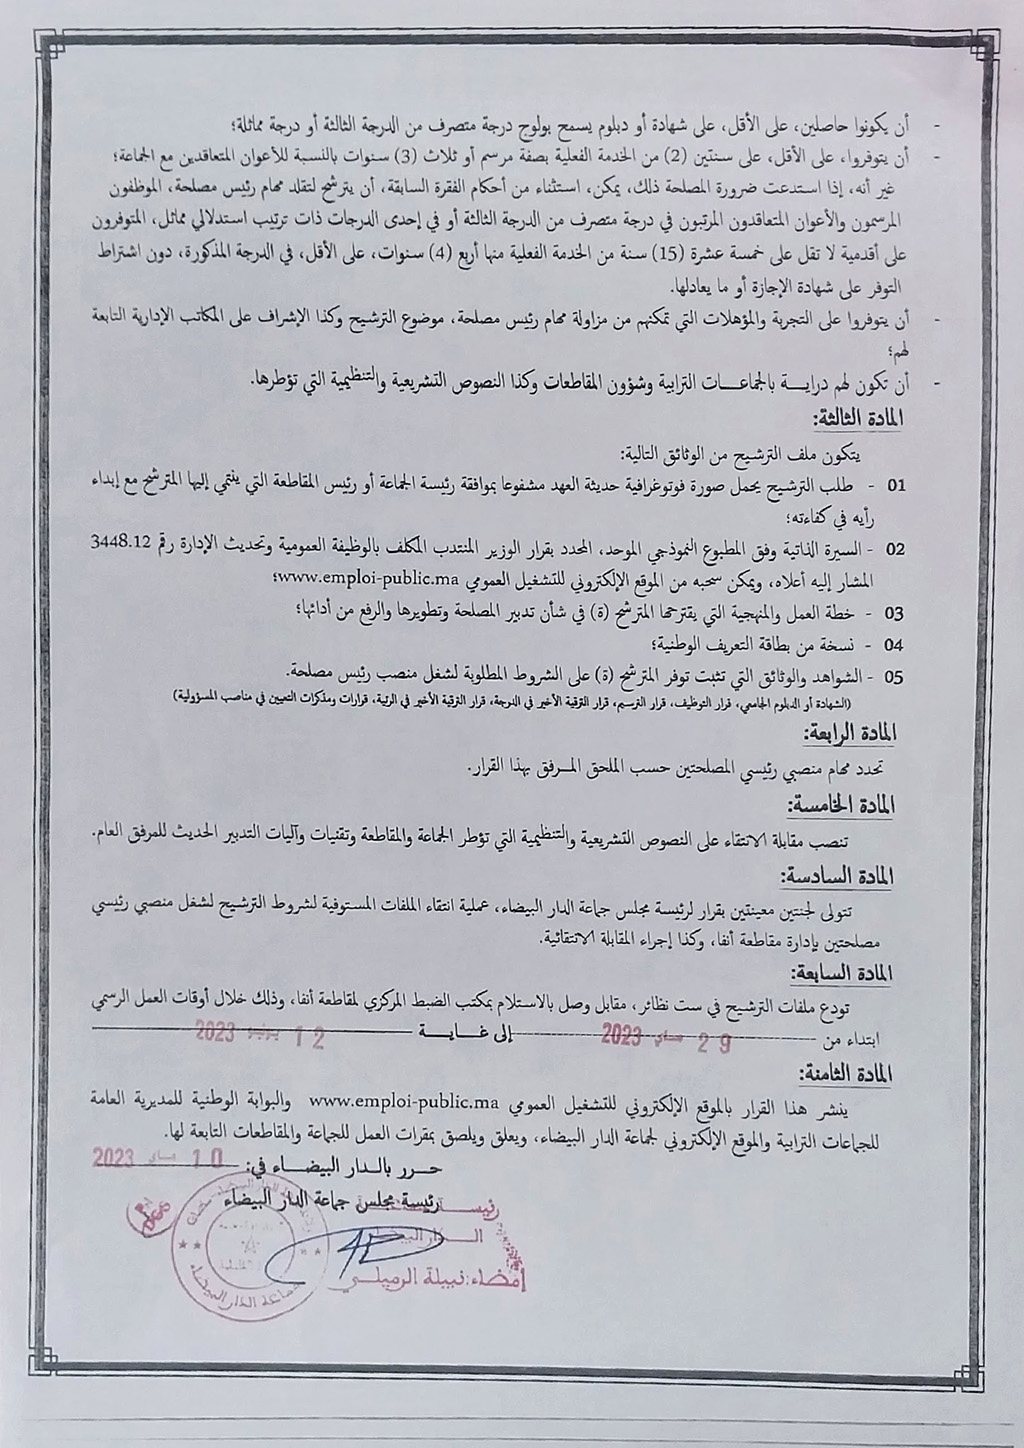 - أن يكونوا حاصلين، على الأقل، على شهادة أو دبلوم يسمح بولوج درجة متصرف من الدرجة الثالثة أو درجة مماثلة؛
- أن يتوفروا، على الأقل، على سنتين (2) من الخدمة الفعلية بصفة مرسم أو ثلاث (3) سنوات بالنسبة للأعوان المتعاقدين مع الجماعة؛
غير أنه، إذا استدعت ضرورة المصلحة ذلك، يمكن، استثناء من أحكام الفقرة السابقة، أن يترشح لتقلد مهام رئيس مصلحة، الموظفون
المرسمون والأعوان المتعاقدون المرتبون في درجة متصرف من الدرجة الثالثة أو في إحدى الدرجات ذات ترتيب استدلالي مماثل، المتوفرون
على أقدمية لا تقل على خمسة عشرة (15) سنة من الخدمة الفعلية منها أربع (4) سنوات، على الأقل، في الدرجة المذكورة، دون اشتراط
التوفر على شهادة الإجازة أو ما يعادلها.
- أن يتوفروا على التجربة والمؤهلات التي تمكنهم من مزاولة مهام رئيس مصلحة، موضوع الترشيح وكذا الإشراف على المكاتب الإدارية التابعة
لهم؛
- أن تكون لهم درايـــة بالجماعـــات الترابية وشؤون المقاطعات وكذا النصوص التشريعية والتنظيمية التي تؤطرها.
المادة الثالثة:
يتكون ملف الترشيح من الوثائق التالية:
01 - طلب الترشيح يحمل صورة فوتوغرافية حديثة العهد مشفوعا بموافقة رئيسة الجماعة أو رئيس المقاطعة التي ينتمي إليها المترشح مع إبداء
رأيه في كفاءته؛
02 - السيرة الذاتية وفق المطبوع النموذجي الموحد، المحدد بقرار الوزير المنتدب المكلف بالوظيفة العمومية وتحديث الإدارة رقم 3448.12
المشار إليه أعلاه، ويمكن سحبه من الموقع الإلكتروني للتشغيل العمومي www.emploi-public.ma؛
03 - خطة العمل والمنهجية التي يقترحها المترشح (ة) في شأن تدبير المصلحة وتطويرها والرفع من أدائها؛
04 - نسخة من بطاقة التعريف الوطنية؛
05 - الشواهد والوثائق التي تثبت توفر المترشح (ة) على الشروط المطلوبة لشغل منصب رئيس مصلحة.
(الشهادة أو الدبلوم الجامعي، قرار التوظيف، قرار الترسيم، قرار الترقية الأخير في الدرجة، قرار الترقية الأخير في الرتبة، قرارات ومذكرات التعيين في مناصب المسؤولية)
المادة الرابعة:
تحدد مهام منصبي رئيسي المصلحتين حسب الملحق المــرفق بهذا القرار.
المادة الخامسة:
تنصب مقابلة الانتقاء على النصوص التشريعية والتنظيمية التي تؤطر الجماعة والمقاطعة وتقنيات وآليات التدبير الحديث للمرفق العام.
المادة السادسة:
تتولى لجنتين معينتين بقرار لرئيسة مجلس جماعة الدار البيضاء، عملية انتقاء الملفات المستوفية لشروط الترشيح لشغل منصبي رئيسي
مصلحتين بإدارة مقاطعة أنفا، وكذا إجراء المقابلة الانتقائية.
المادة السابعة:
تودع ملفات الترشيح في ست نظائر، مقابل وصل بالاستلام بمكتب الضبط المركزي لمقاطعة أنفا، وذلك خلال أوقات العمل الرسمي
ابتداء من 29 ماي 2023 إلى غـايـــة 12 يونيو 2023
المادة الثامنة:
ينشر هذا القرار بالموقع الإلكتروني للتشغيل العمومي www.emploi-public.ma والبوابة الوطنية للمديرية العامة
للجماعات الترابية والموقع الإلكتروني لجماعة الدار البيضاء، ويعلق ويلصق بمقرات العمل للجماعة والمقاطعات التابعة لها.
حــرر بالـدار البيضـــاء في: 10 ماي 2023
رئيسة مجلس جماعة الدار البيضاء
الـــدار البيضاء
إمضاء: نبيلة الرميلـــي
جماعة الدار البيضاء